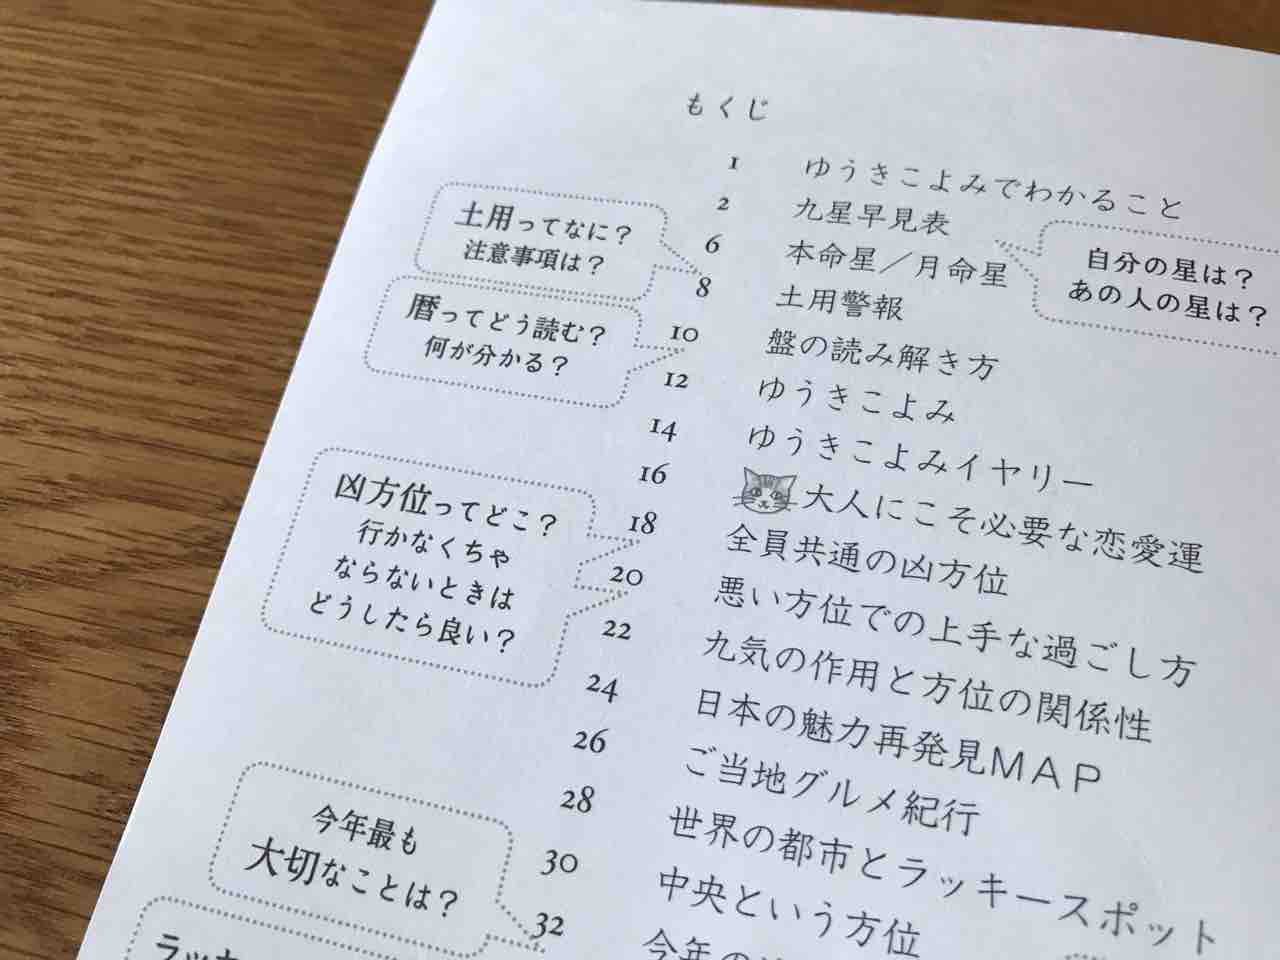 もくじ
1 ゆうきこよみでわかること
2 九星早見表
6 本命星／月命星
8 土用警報
10 盤の読み解き方
12 ゆうきこよみ
14 ゆうきこよみイヤリー
16 大人にこそ必要な恋愛運
18 全員共通の凶方位
20 悪い方位での上手な過ごし方
22 九気の作用と方位の関係性
24 日本の魅力再発見MAP
26 ご当地グルメ紀行
28 世界の都市とラッキースポット
30 中央という方位
32 今年の
自分の星は？
あの人の星は？
土用ってなに？
注意事項は？
暦ってどう読む？
何が分かる？
凶方位ってどこ？
行かなくちゃ
ならないときは
どうしたら良い？
今年最も
大切なことは？
ラッキ